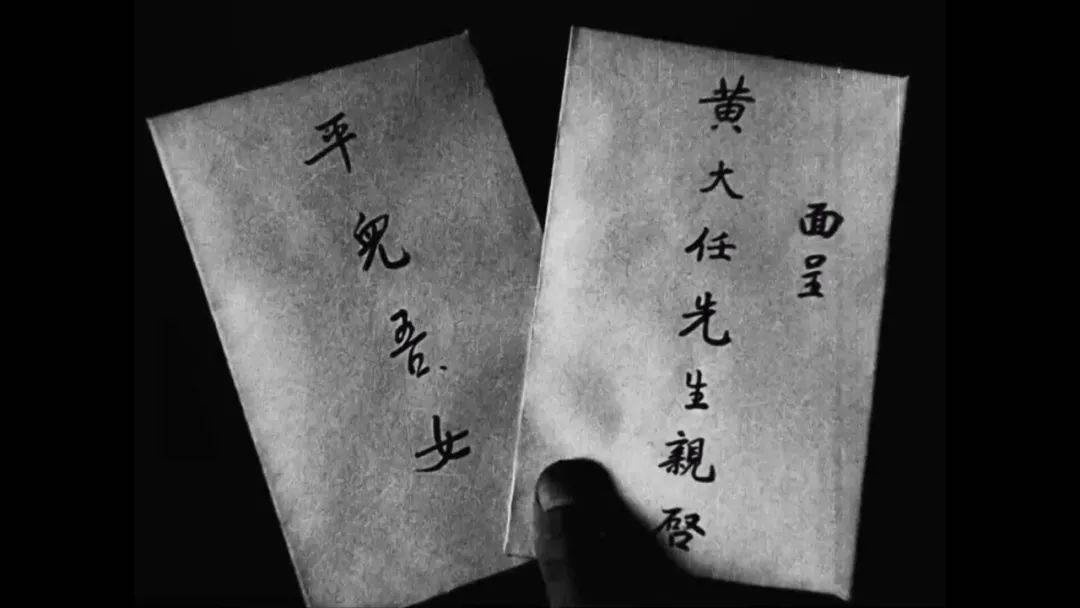 平兒吾女
面呈
黄大任先生親啓